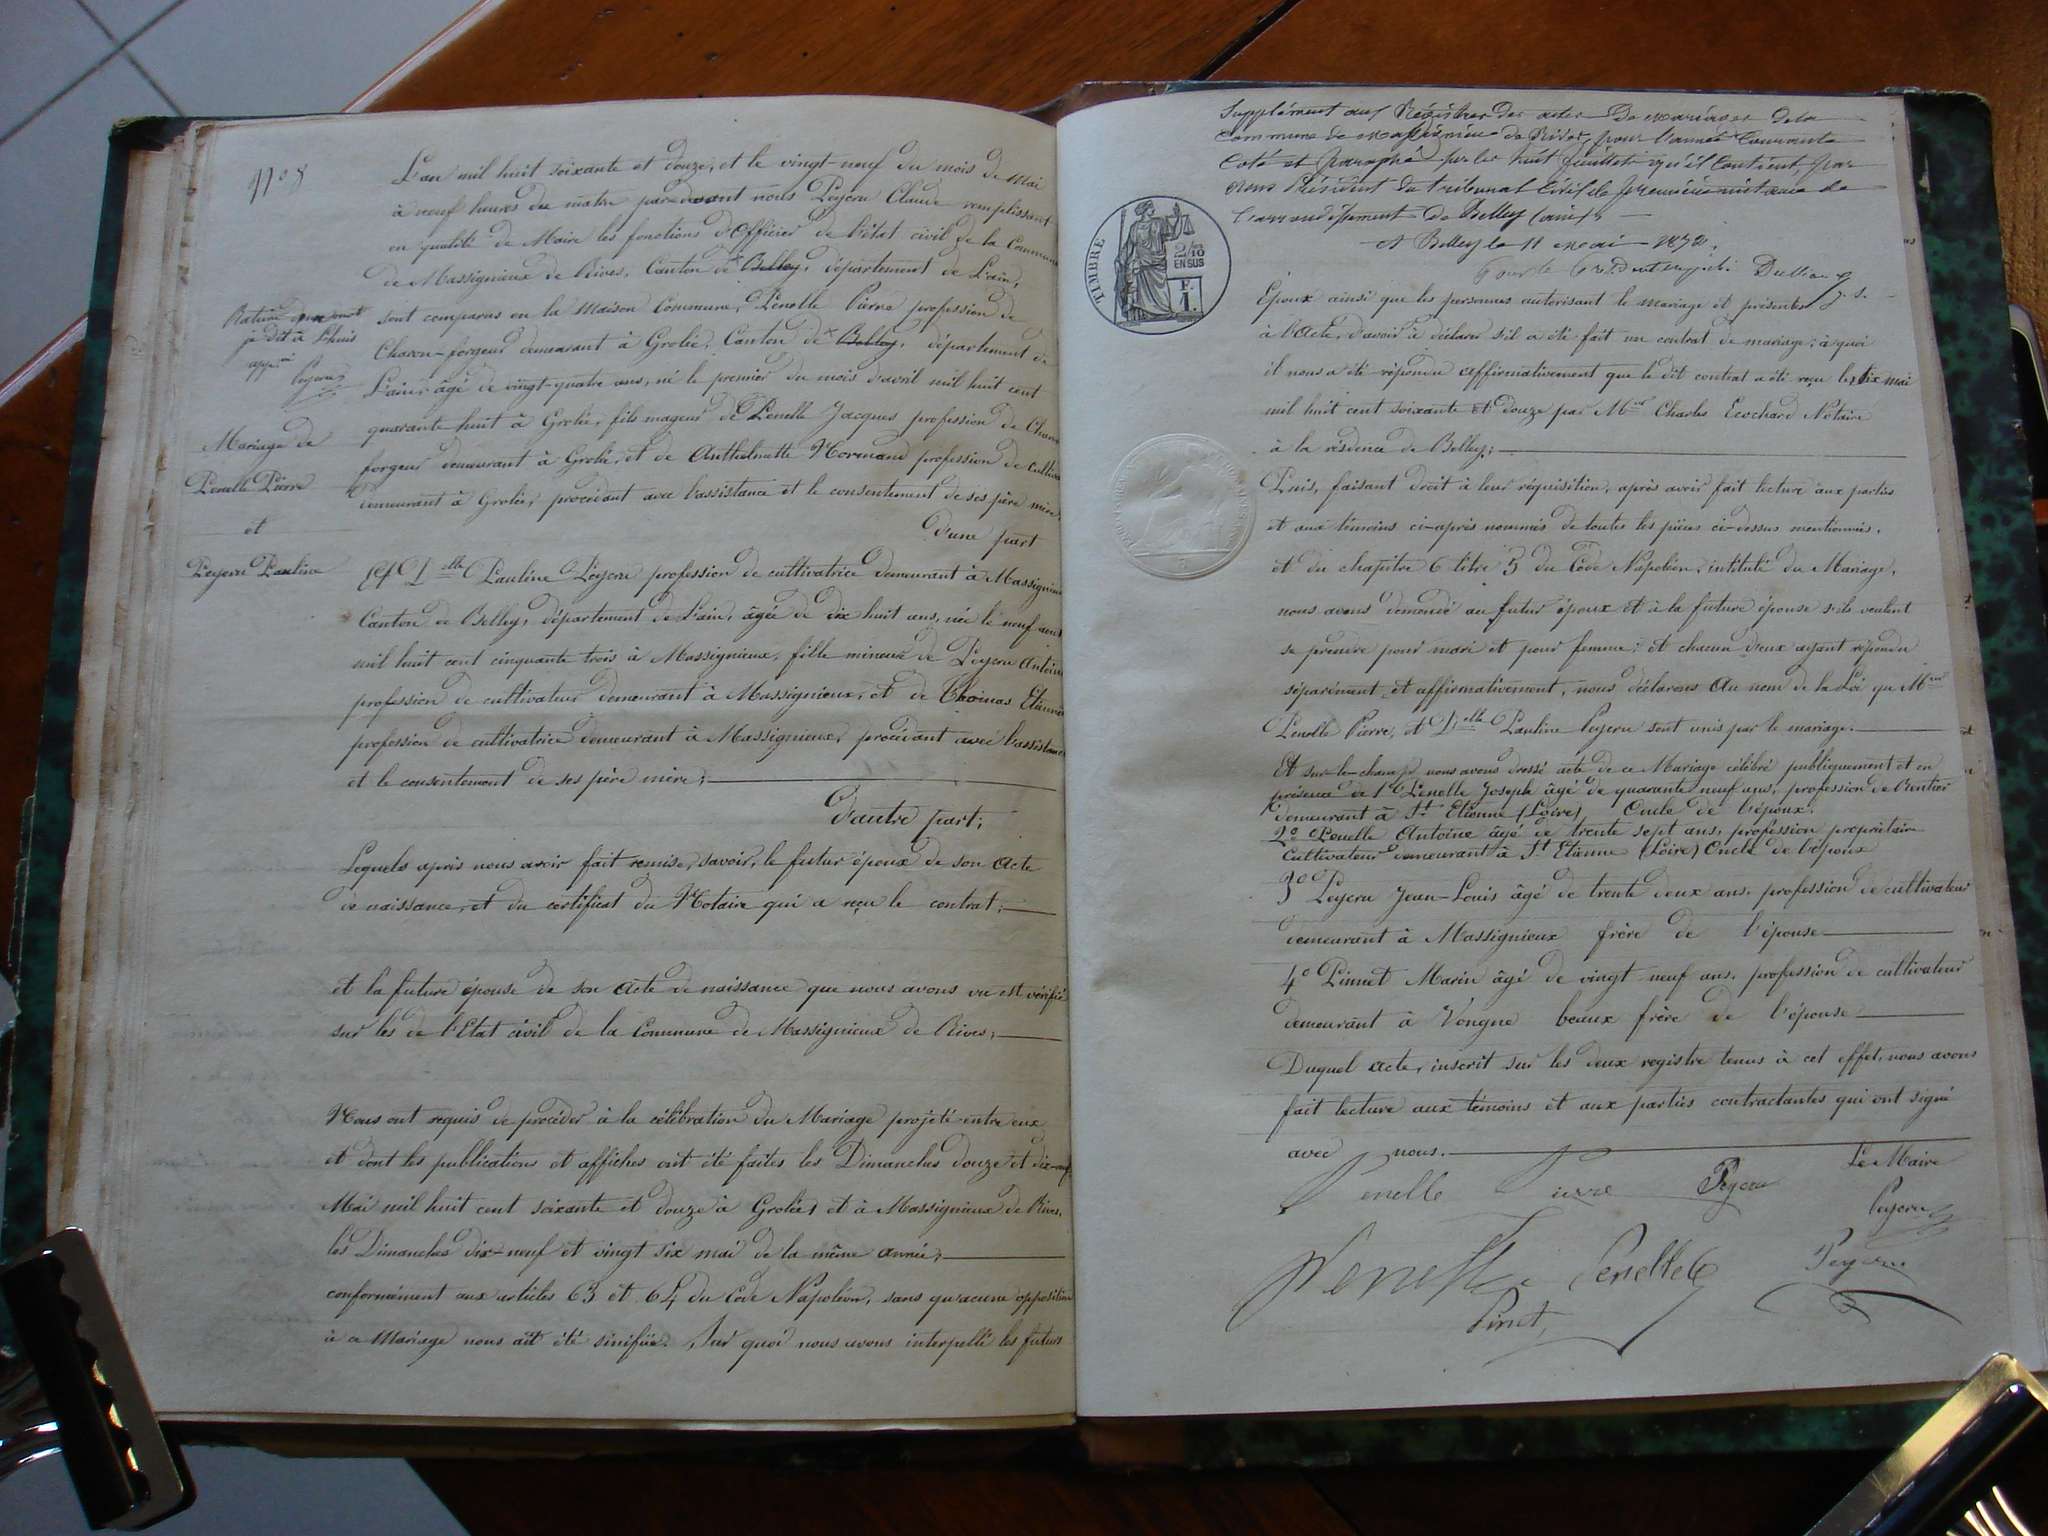 N° 8
L'an mil huit soixante et douze, et le vingt-neuf du mois de Mai
à neuf heures du matin par devant nous Peyeru Claude remplissant
en qualité de Maire les fonctions d'Officier de l'état civil de la Commune
de Massignieux de Rives, Canton de Belley, département de L'ain,
sont comparus en la Maison Commune, Penelle Pierre profession de
Charon-forgeur demeurant à Groléé, Canton de Belley, département de
L'ain âgé de vingt-quatre ans, né le premier du mois d'avril mil huit cent
quarante huit à Groléé, fils mageur de Penelle Jacques profession de Charon
forgeur demeurant à Groléé, et de Anthelmette Normand profession de cultiva
demeurant à Groléé, procédant avec l'assistance et le consentement de ses père mère,
D'une part
Rature
je dit à Lhuis
app.
Peyeru
Mariage de
Penelle Pierre
et
Peyeru Pauline
Et Delle Pauline Peyeru profession de cultivatrice demeurant à Massignieux
Canton de Belley, département de L'ain, âgée de dix huit ans, née le neuf aout
mil huit cent cinquante trois à Massignieux, fille mineure de Peyeru Antoine
profession de cultivateur demeurant à Massignieux, et de Thomas Etiennette
profession de cultivatrice demeurant à Massignieux, procédant avec l'assistance
et le consentement de ses père mère,
D'autre part;
Lequels après nous avoir fait remise, savoir, le futur époux de son acte
de naissance, et du certificat du Notaire qui a reçu le contrat;
et la future épouse de son acte de naissance que nous avons vu est vérifié
sur les de l'Etat civil de la Commune de Massignieux de Rives;
Nous ont requis de procéder à la célébration du Mariage projeté entre eux
et dont les publications et affiches ont été faites les Dimanches douze et dix-neuf
Mai mil huit cent soixante et douze à Groléé, et à Massignieux de Rives,
les Dimanches dix-neuf et vingt six mai de la même année;
conformément aux articles 63 et 64 du Code Napoléon, sans qu'aucune opposition
à ce Mariage nous ait été sinifiée. Sur quoi nous avons interpellé les futurs
Supplément aux Régistres des actes De mariages de la
Commune de Massignieu de Rives, pour l'année Courante
Coté et paraphé par les huit feuillets qu'il Contient, par
nous Président du tribunal Civil de première instance de
l'arrondissement De Belley (ain)
A Belley le 11 Mai 1872.
Pour le Président empêché
TIMBRE
2/10
EN SUS
F.
1.
Epoux ainsi que les personnes autorisant le mariage et présentes
à l'Acte, d'avoir à déclarer s'il a été fait un contrat de mariage; à quoi
il nous a été répondu affirmativement que le dit contrat a été reçu le six mai
mil huit cent soixante et douze par Me Charles Ecochard Notaire
à la résidence de Belley;
Puis, faisant droit à leur réquisition, après avoir fait lecture aux parties
et aux témoins ci-après nommés de toutes les pièces ci-dessus mentionnées,
et du chapitre 6 titre 5 du Code Napoléon, intitulé du Mariage,
nous avons demandé au futur époux et à la future épouse s'ils veulent
se prendre pour mari et pour femme; et chacun d'eux ayant répondu
séparément et affirmativement, nous déclarons Au nom de la Loi que Mr
Penelle Pierre, et Delle Pauline Peyeru sont unis par le mariage.
Et sur-le-champ nous avons dressé acte de ce Mariage célébré publiquement et en
présence de 1° Penelle Joseph âgé de quarante neuf ans, profession de Rentier
demeurant à St Etienne (Loire) Oncle de l'époux.
2° Penelle Antoine âgé de trente sept ans, profession propriétaire
Cultivateur demeurant à St Etienne (Loire) Oncle de l'époux
3° Peyeru Jean-Louis âgé de trente deux ans, profession de cultivateur
demeurant à Massignieux frère de l'épouse
4° Pinnet Marin âgé de vingt-neuf ans, profession de cultivateur
demeurant à Vongne beaux frère de l'épouse
Duquel acte, inscrit sur les deux registre tenus à cet effet, nous avons
fait lecture aux témoins et aux parties contractantes qui ont signé
avec nous.
Le Maire
Penelle Pierre Peyeru
Peyeru
Penelle Penelle Peyeru
Pinet